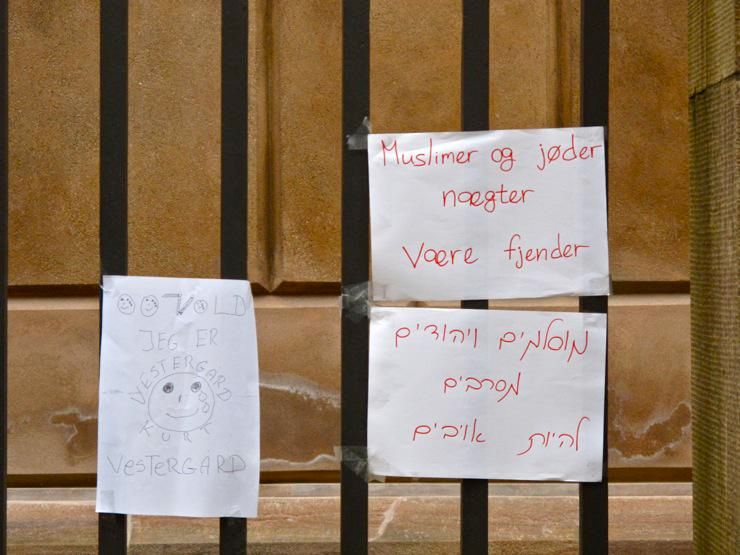 VOLD
JEG ER
VESTERGARD
KURT
VesTERGARD
Muslimer og jøder
nægter
Være fjender
מוסלמים ויהודים
מסרבים
להיות אויבים